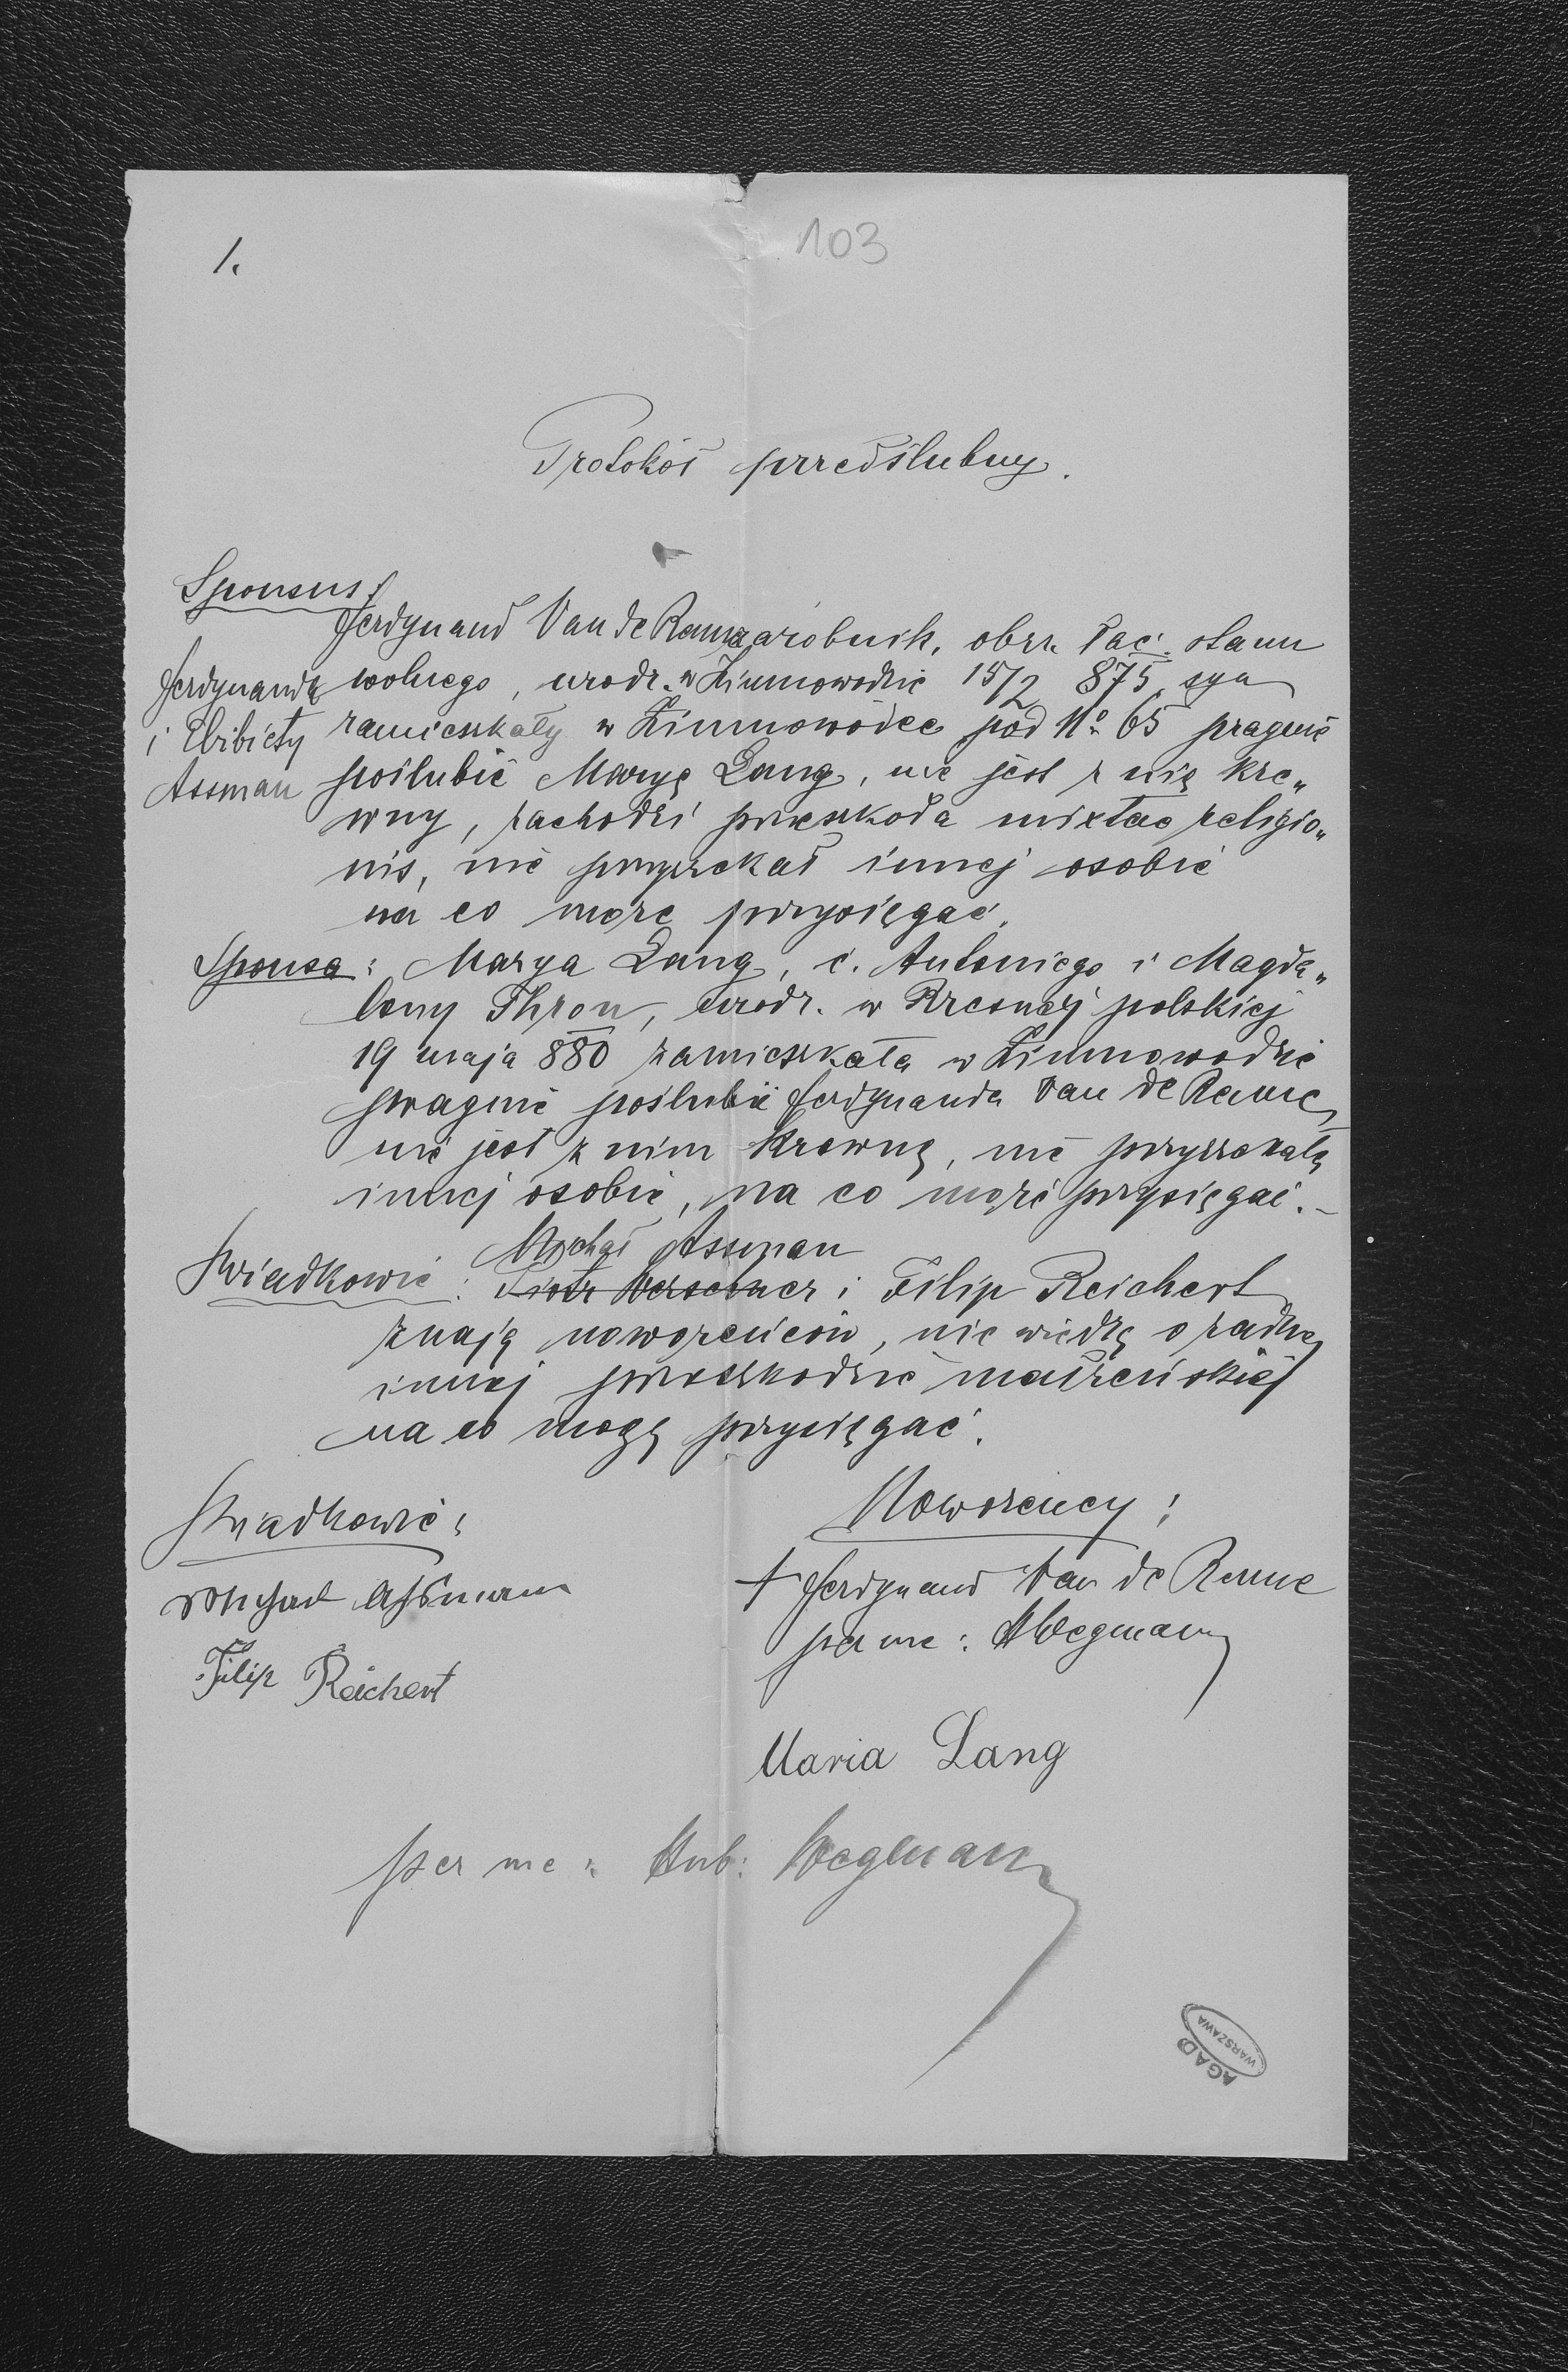 1.
103
Protokół przedślubny.
Sponsus:
Ferdynand Van de Rame zarobnik, obrz. łac. stanu
wolnego, urodz. w Zimnowodzie 15/2 875, syn
Ferdynanda
i Elżbiety
Assman
zamieszkały w Zimnowódce pod No 65 pragnie
poślubić Maryę Lang, nie jest z nią kre„
wny, zachodzi przeszkoda mixtae religio„
nis, nie przyrzekał innej osobie
na co może przysięgać.
Sponsa: Marya Lang, c. Antoniego i Magda„
leny Thron, urodz. w Rzesnej polskiej
19 maja 880 zamieszkała w Zimnowodzie
pragnie poślubić Ferdynanda Van de Rame,
nie jest z nim krewną, nie przyrzekała
innej osobie, na co może przysięgać. –
Michał Assman
Świadkowie: Piotr i Filip Reichert
znają nowożeńców, nie wiedzą o żadnej
innej przeszkodzie małżeńskiej
na co mogą przysięgać.
Świadkowie:
Michael Assmann
Filip Reichert
Nowożency:
+ Ferdynand Van de Rame
per me: HWegmann
Maria Lang
per me: Hub: Wegmann
AGAD
WARSZAWA